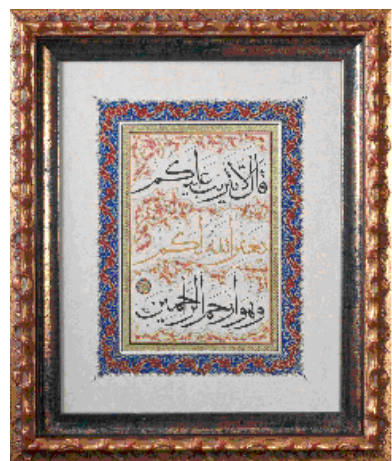 قال لا تثريب عليكم
يغفر الله لكم
وهو أرحم الرحمين